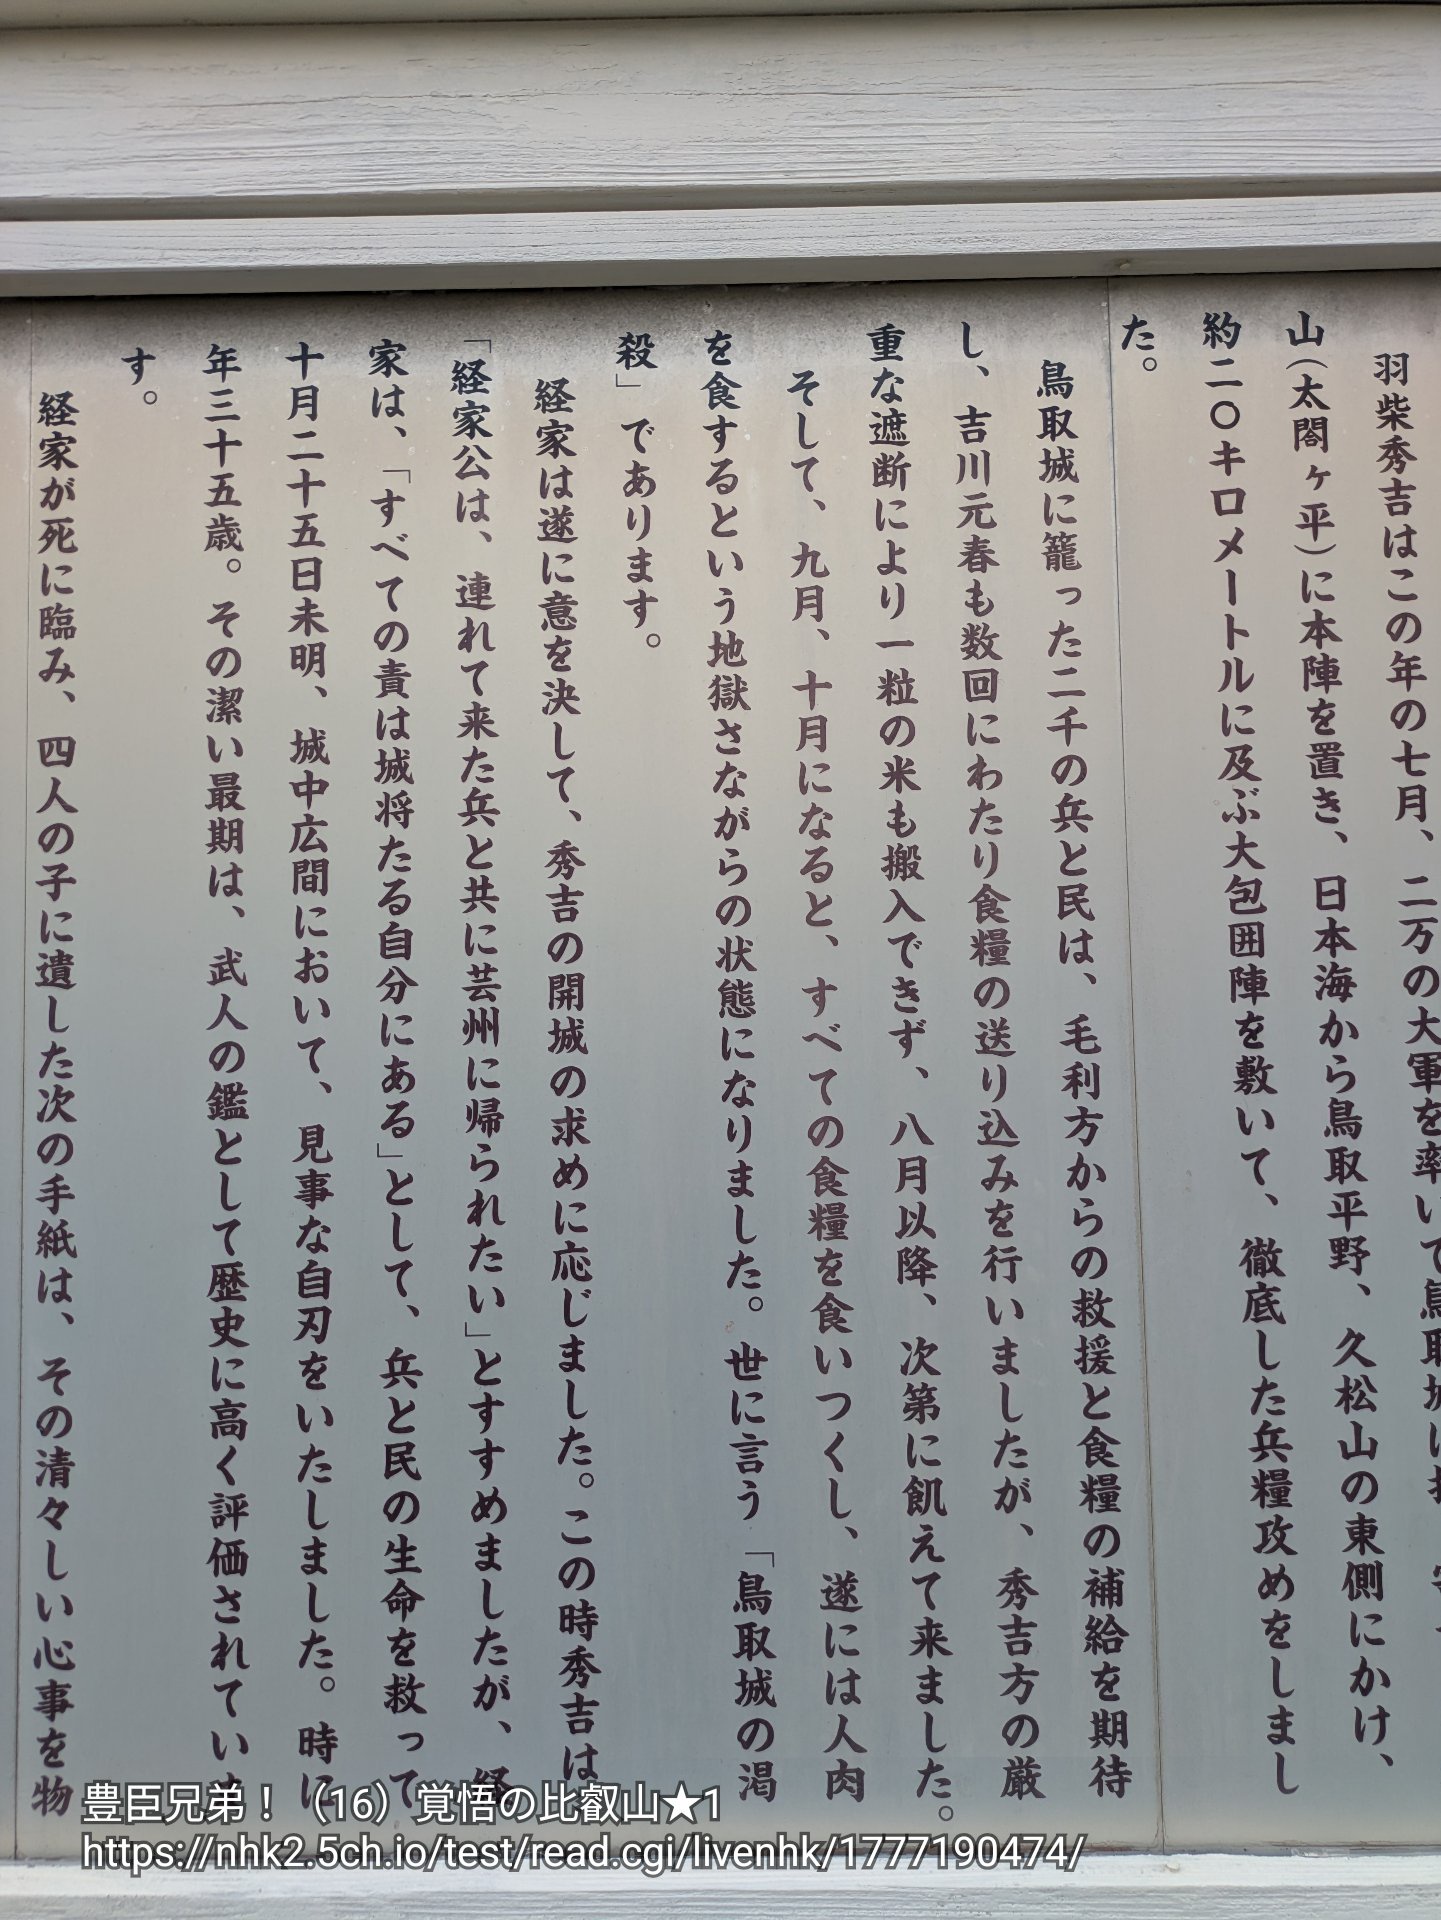 羽柴秀吉はこの年の七月、二万の大軍を率いて鳥取城
山(太閤ヶ平)に本陣を置き、日本海から鳥取平野、久松山の東側にかけ、
約二〇キロメートルに及ぶ大包囲陣を敷いて、徹底した兵糧攻めをしまし
た。
鳥取城に籠った二千の兵と民は、毛利方からの救援と食糧の補給を期待
し、吉川元春も数回にわたり食糧の送り込みを行いましたが、秀吉方の厳
重な遮断により一粒の米も搬入できず、八月以降、次第に飢えて来ました。
そして、九月、十月になると、すべての食糧を食いつくし、遂には人肉
を食するという地獄さながらの状態になりました。世に言う「鳥取城の渇
殺」であります。
経家は遂に意を決して、秀吉の開城の求めに応じました。この時秀吉は
「経家公は、連れて来た兵と共に芸州に帰られたい」とすすめましたが、経
家は、「すべての責は城将たる自分にある」として、兵と民の生命を救って
十月二十五日未明、城中広間において、見事な自刃をいたしました。時に
年三十五歳。その潔い最期は、武人の鑑として歴史に高く評価されていま
す。
経家が死に臨み、四人の子に遺した次の手紙は、その清々しい心事を物
豊臣兄弟！（16）覚悟の比叡山★1
https://nhk2.5ch.io/test/read.cgi/livenhk/1777190474/